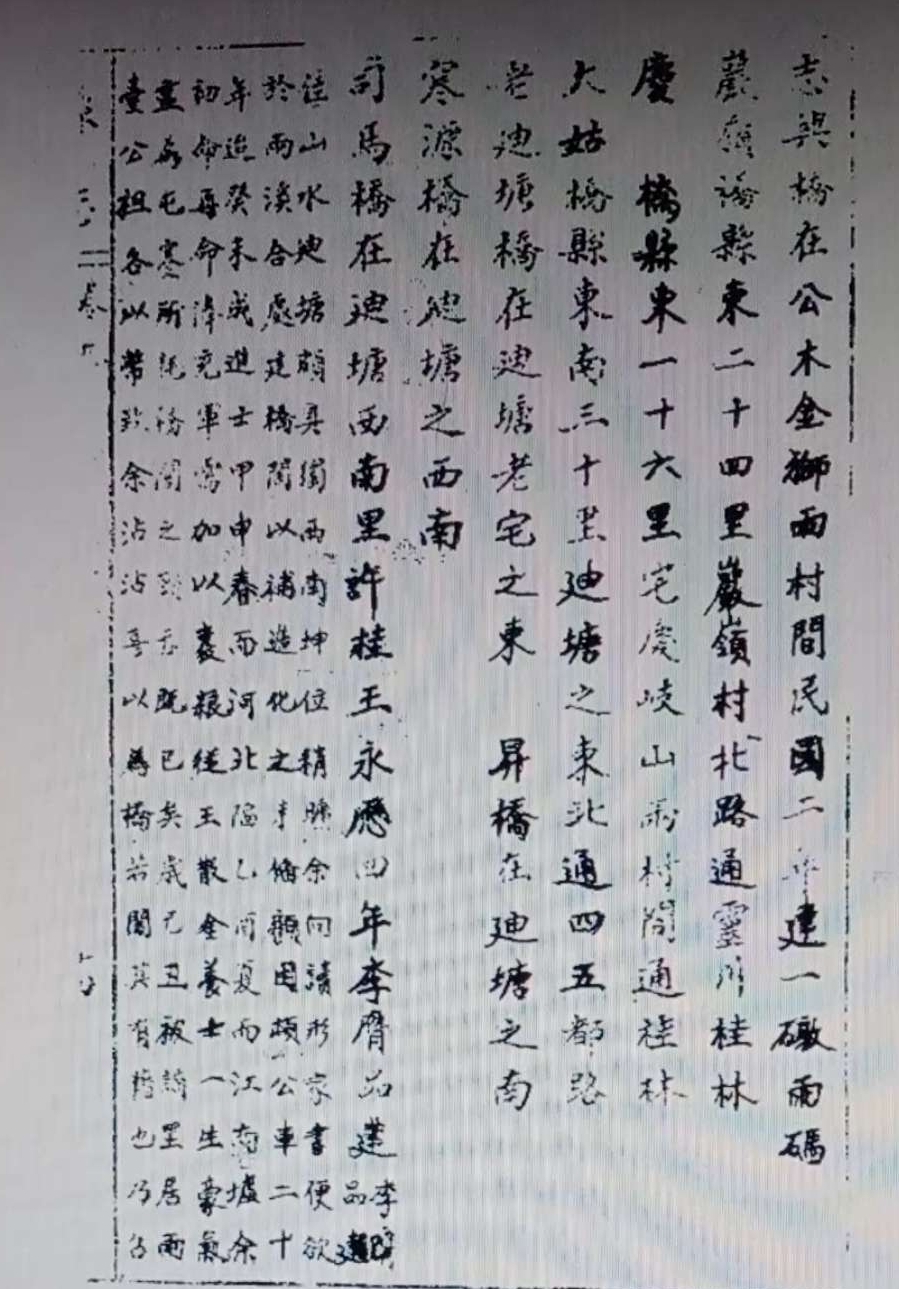 志興橋在公木金獅兩村間民國二年建一礅兩碼
巖嶺橋縣東二十四里巖嶺村北路通靈川桂林
慶 橋縣東一十六里宅慶岐山兩村間通桂林
大姑橋縣東南三十里廸塘之東北通四五都路
老廸塘橋在廸塘老宅之東 昇橋在廸塘之南
寒源橋在廸塘之西南
司馬橋在廸塘西南里許桂王永曆四年李膺品建李膺品
佳山水廸塘頗具獨西南坤位稍缺余向讀形家書便欲
於兩溪合處建橋閣以補造化之手條顧困頓公車二十
年迨癸未成進士甲申春而河北陷乙酉夏而江南墟余
初命再命洊充軍需加以裹粮從王散金養士一生豪氣
盡為屯寒所阨橋閣之既已矣歲己丑被謫里居兩
臺公担各以幣致余沾沾喜以為橋若閣其有待也乃